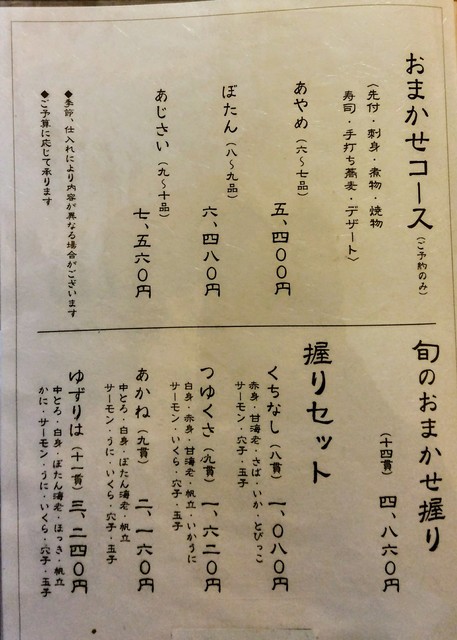 おまかせコース（ご予約のみ）
〈先付・刺身・煮物・焼物
寿司・手打ち蕎麦・デザート〉
あやめ（六〜七品）
五、四〇〇円
ぼたん（八〜九品）
六、四八〇円
あじさい（九〜十品）
七、五六〇円
◆季節、仕入れにより内容が異なる場合がございます
◆ご予算に応じて承ります
旬のおまかせ握り
（十四貫） 四、八六〇円
握りセット
くちなし（八貫） 一、〇八〇円
赤身・甘海老・さば・いか・とびっこ
サーモン・穴子・玉子
つゆくさ（九貫） 一、六二〇円
白身・赤身・甘海老・帆立・いかうに
サーモン・いくら・穴子・玉子
あかね（九貫） 二、一六〇円
中とろ・白身・ぼたん海老・帆立
サーモン・うに・いくら・穴子・玉子
ゆずりは（十一貫）三、二四〇円
中とろ・白身・ぼたん海老・ほっき・帆立
かに・サーモン・うに・いくら・穴子・玉子